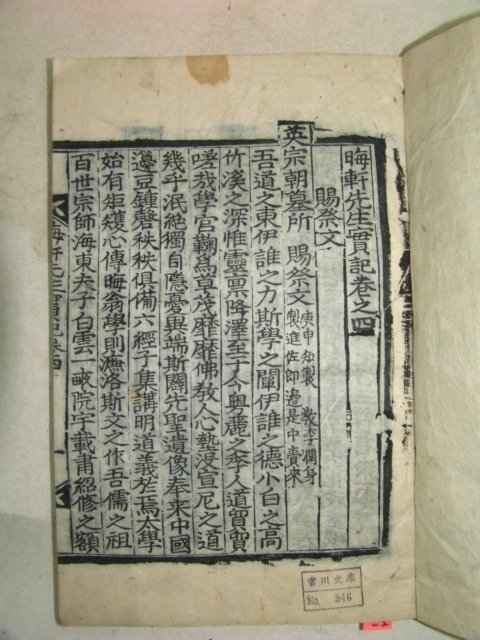 晦軒先生實記卷之四
賜祭文
英宗朝墓所 賜祭文 庚申知製 敎李潤身
製進佐郎邊是中賫來
吾道之東伊誰之力斯學之闡伊誰之德小白之高
竹溪之深惟靈禀降澤至于今奧麗之季人道貿貿
嗟哉學宮鞠爲草茂靡靡佛敎人心執浸宣尼之道
幾乎泯絶獨自隱憂異端斯闢先聖遺像奉來中國
籩豆鍾磬秩秩俱備六經子集講明道義笙焉太學
始有矩矱心傳晦翁學則濂洛斯文之作吾儒之祖
百世宗師海東夫子白雲一畝院宇載肅紹修之額
雲川文庫
No. 946